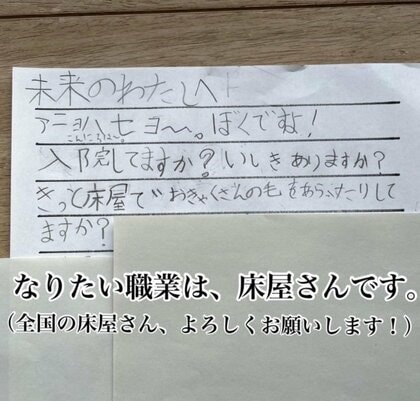 未来のわたしへ
アニョハセヨ〜。ぼくですよ!
こんにちは〜。
入院してますか?いしきありますか?
きっと床屋でおきゃくさんの毛をあらったりして
ますか?
なりたい職業は、床屋さんです。
(全国の床屋さん、よろしくお願いします!)